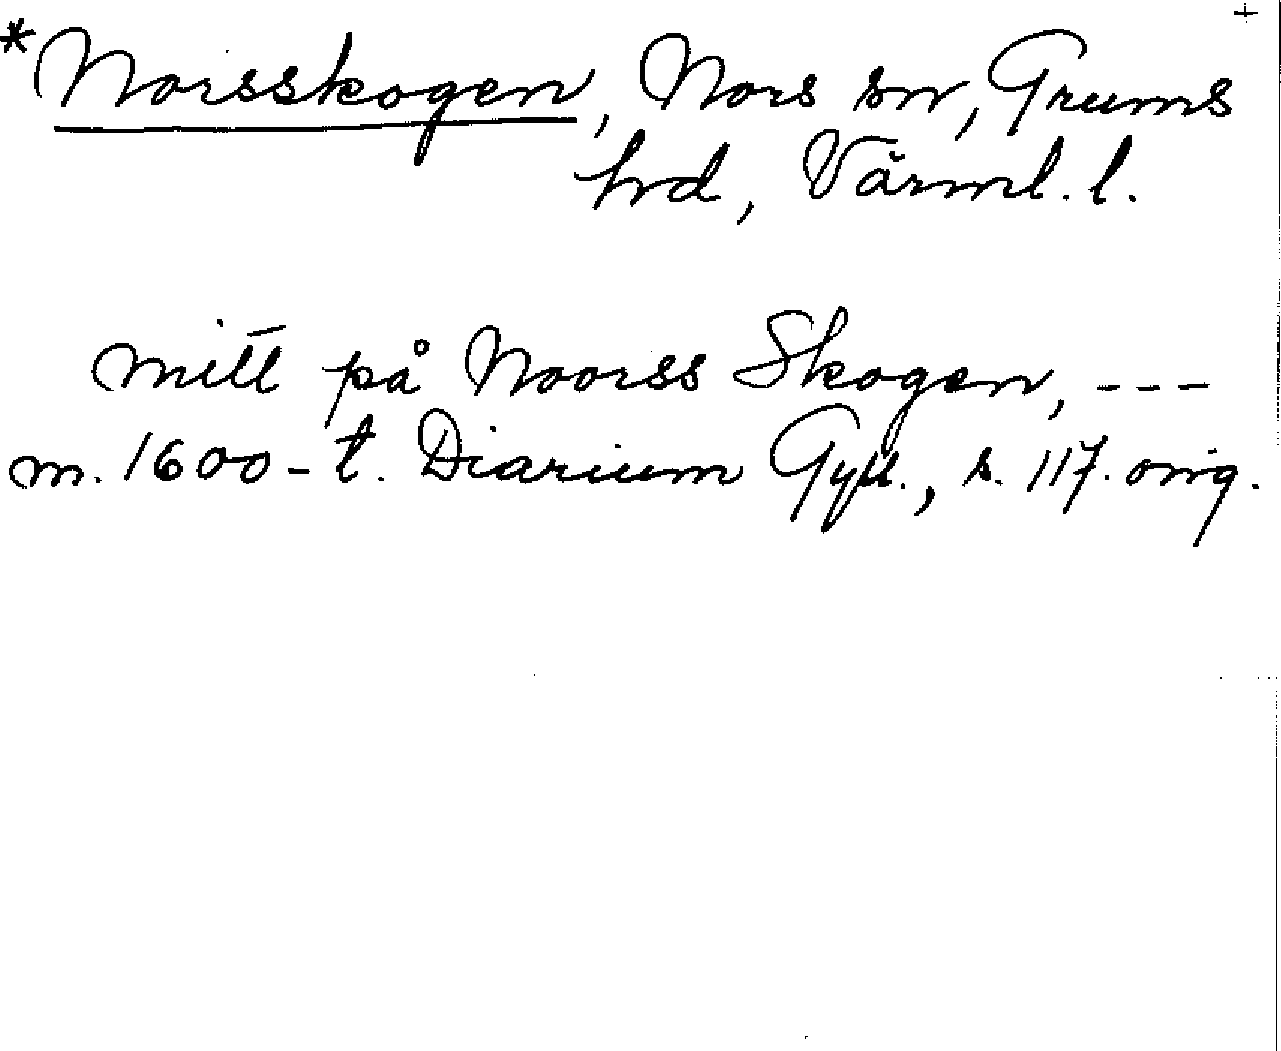 +
*Norsskogen, Nors sn, Grums
hrd, Värml. l.
mitt på Noorss Skogen, ---
m. 1600-t. Diarium Gyll., s. 117. orig.